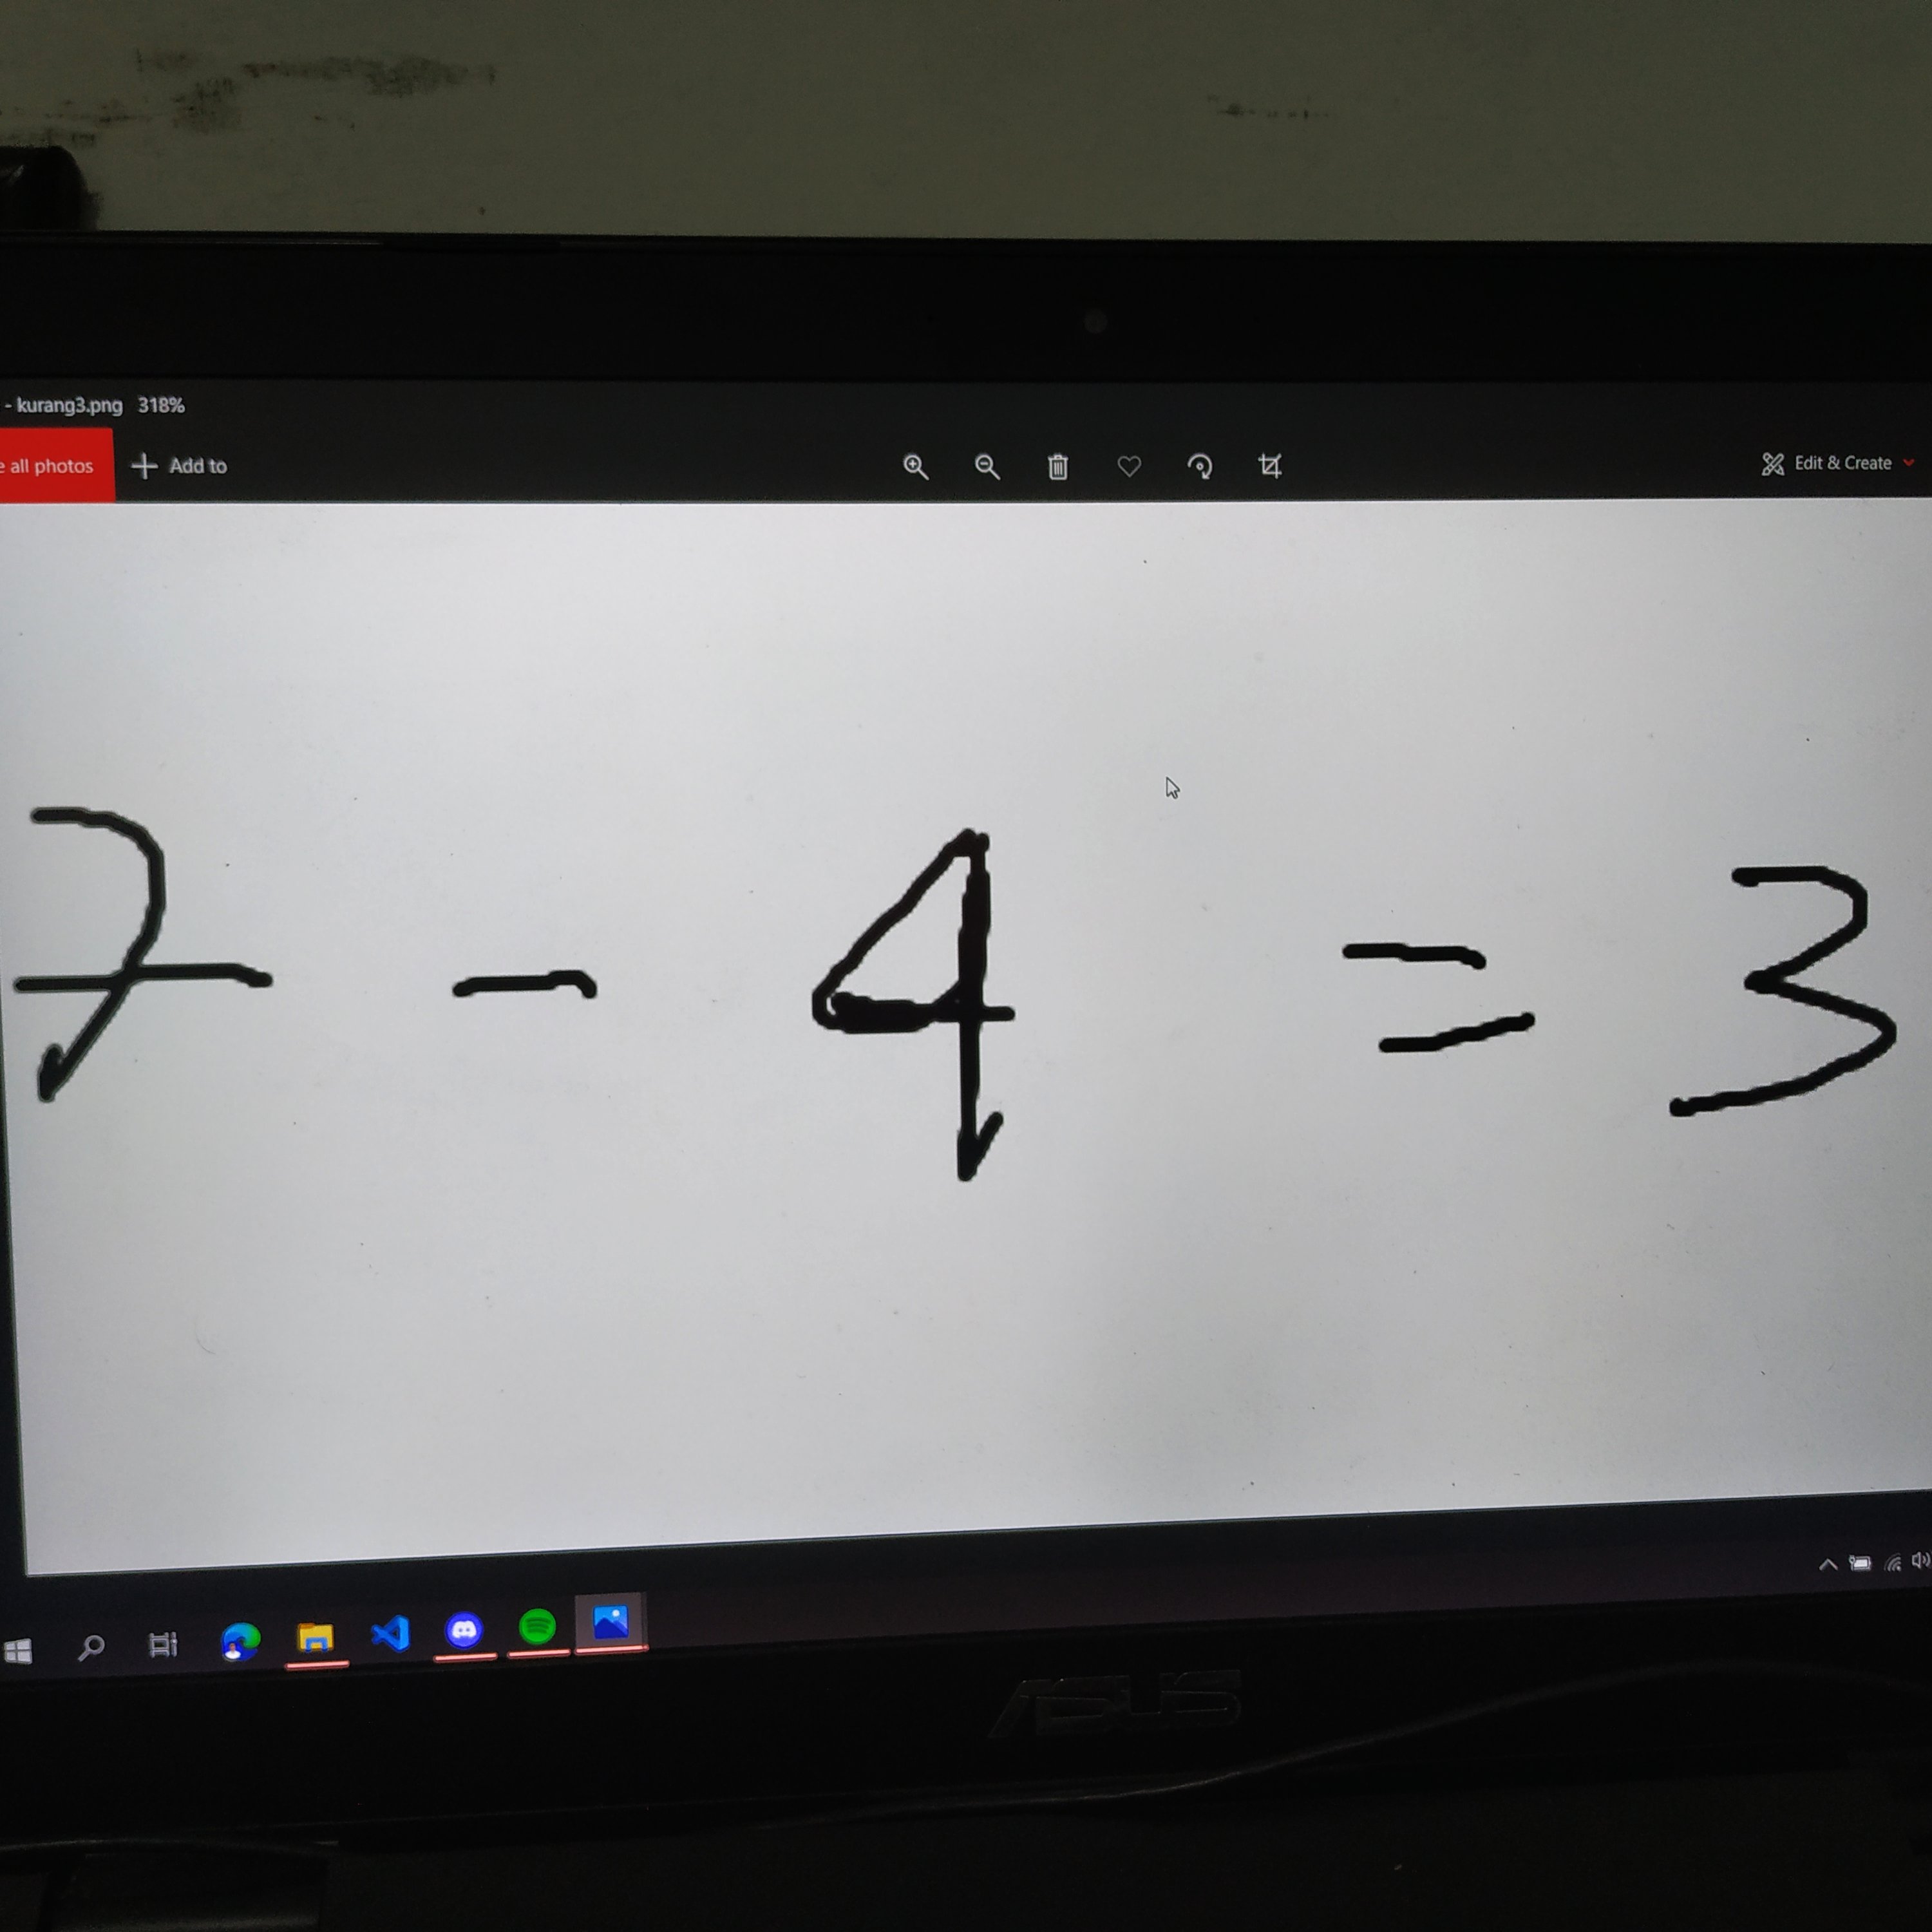 - kurang3.png 318%
e all photos + Add to Edit & Create
7 - 4 = 3
ASUS